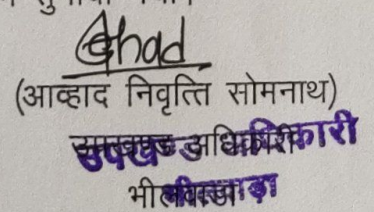 Ghad
(आव्हाद निवृत्ति सोमनाथ)
उपखण्ड अधिकारी
भीलवाड़ा